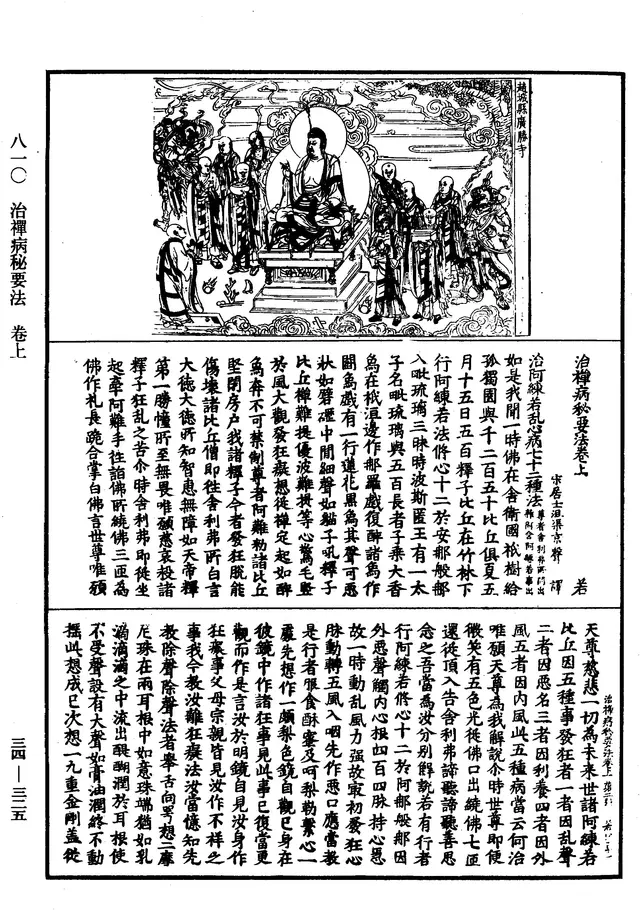 八一〇　治禪病秘要法　卷上
三四—三二五
趙城縣廣勝寺
治禪病秘要法卷上　若
宋居士沮渠京聲　譯
治阿練若亂心病七十二種法
尊者舍利弗所問出
雜阿含阿練若事中
如是我聞一時佛在舍衛國祇樹給
孤獨園與千二百五十比丘俱夏五
月十五日五百釋子比丘在竹林下
行阿練若法修心十二於安那般那
入毗琉璃三昧時波斯匿王有一太
子名毗琉璃與五百長者子乘大香
象在祇洹邊作那羅戲復醉諸象作
鬪象戲有一行蓮花黑象其聲可惡
狀如霹靂中間細聲如貓子吼釋子
比丘禪難提優波難提等心驚毛豎
於風大觀發狂癡想從禪定起如醉
象奔不可禁制尊者阿難勑諸比丘
堅閉房戶我諸釋子今者發狂脫能
傷壞諸比丘僧即往舍利弗所白言
大德大德所知智慧無障如天帝釋
第一勝幢所至無畏唯願慈哀救諸
釋子狂亂之苦尒時舍利弗即從坐
起牽阿難手往詣佛所繞佛三匝爲
佛作礼長跪合掌白佛言世尊唯願
天尊慈悲一切爲未來世諸阿練若
比丘因五種事發狂者一者因亂聲
二者因惡名三者因利養四者因外
風五者因内風此五種病當云何治
唯願天尊爲我解說尒時世尊即便
微笑有五色光從佛口出繞佛七匝
還從頂入告舍利弗諦聽諦聽善思
念之吾當爲汝分别解說若有行者
行阿練若修心十二於阿那般那因
外惡聲觸内心根四百四脉持心急
故一時動亂風力強故寂初發狂心
脉動轉五風入咽先作惡口應當教
是行者服食酥蜜及呵梨勒繫心一
處先想作一頗梨色鏡自觀己身在
彼鏡中作諸狂事見此事已復當更
觀而作是言汝於明鏡自見汝身作
狂癡事父母宗親皆見汝作不祥之
事我今教汝離狂癡法汝當憶知先
教除聲除聲法者舉舌向腭想二摩
尼珠在兩耳根中如意珠端猶如乳
滴滴滴之中流出醍醐潤於耳根使
不受聲設有大聲如膏油潤終不動
搖此想成已次想一九重金剛蓋從